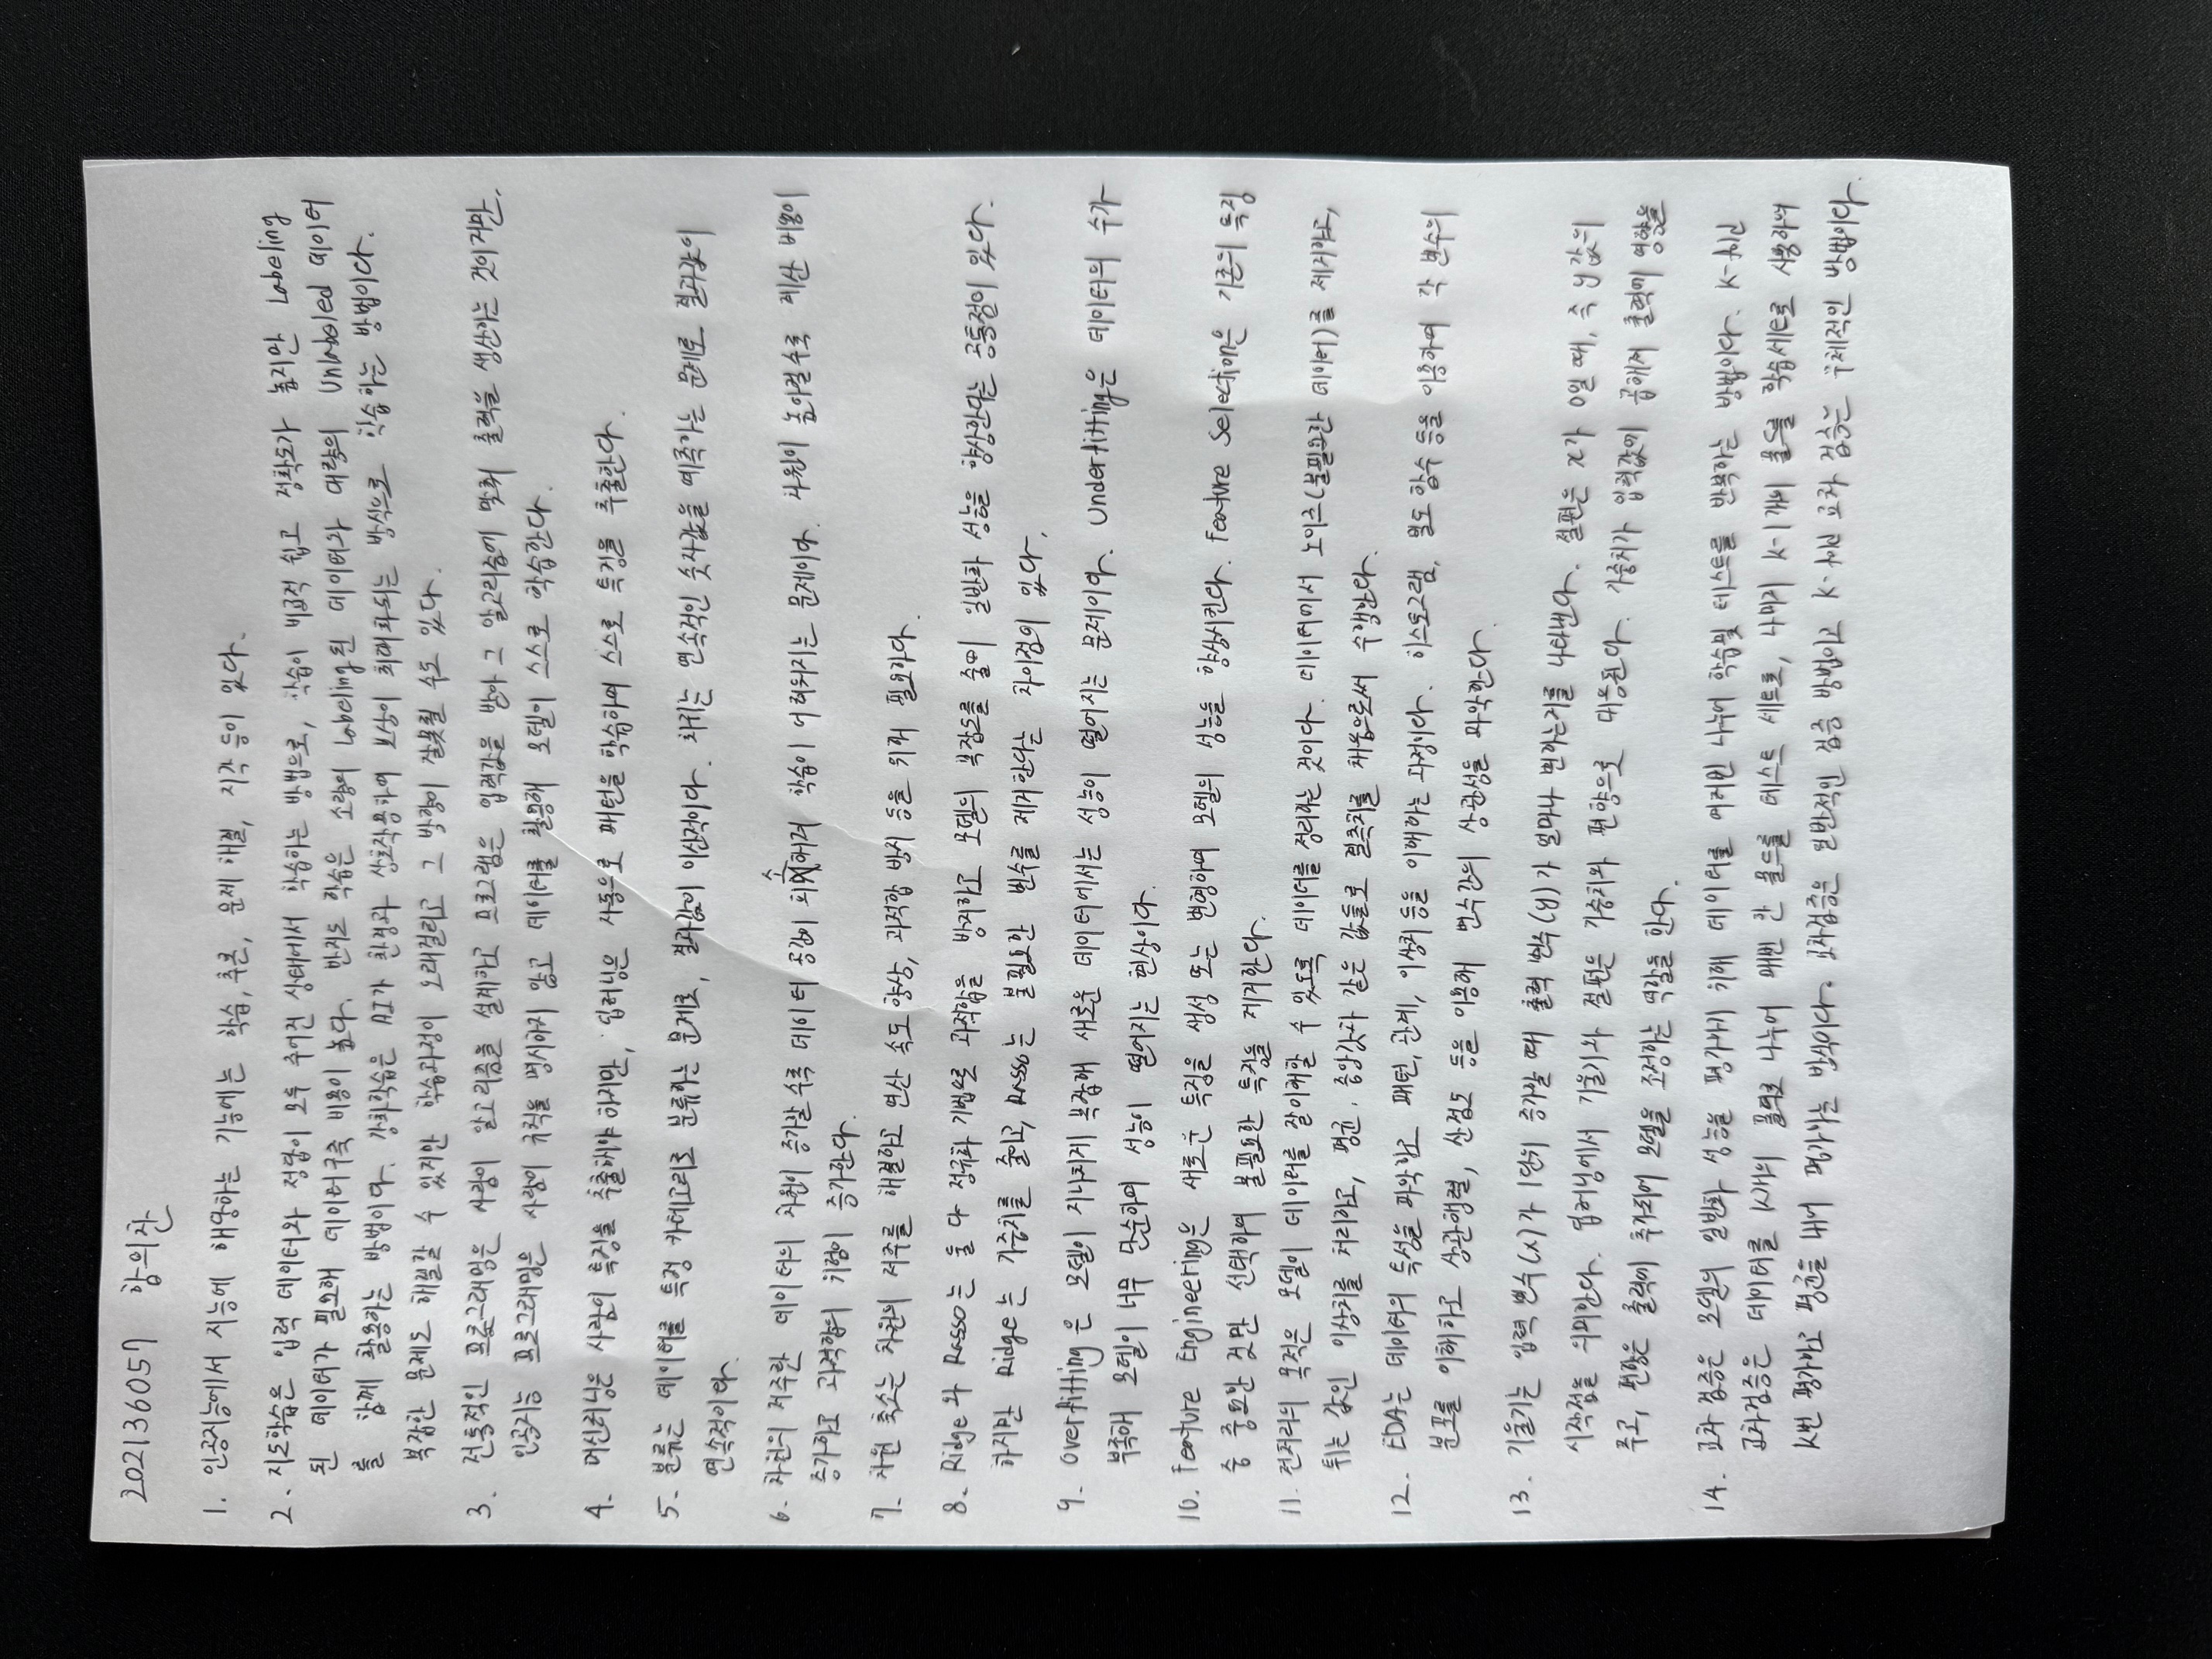 202136057 함의찬
1. 인공지능에서 지능에 해당하는 기능에는 학습, 추론, 문제 해결, 지각 등이 있다.
2. 지도학습은 입력 데이터와 정답이 모두 주어진 상태에서 학습하는 방법으로, 학습이 비교적 쉽고 정확도가 높지만 Labeling
된 데이터가 필요해 데이터구축 비용이 높다. 반지도 학습은 소량의 Labeling된 데이터와 대량의 Unlabeled 데이터
를 함께 활용하는 방법이다. 강화학습은 AI가 환경과 상호작용하며 보상이 최대화되는 방식으로 학습하는 방법이다.
복잡한 문제도 해결할 수 있지만 학습과정이 오래걸리고 그 방향이 잘못될 수도 있다.
3. 전통적인 프로그래밍은 사람이 알고리즘을 설계하고 프로그램은 입력값을 받아 그 알고리즘에 맞춰 출력을 생산하는 것이지만,
인공지능 프로그래밍은 사람이 규칙을 명시하지 않고 데이터를 활용해 모델이 스스로 학습한다.
4. 머신러닝은 사람이 특징을 추출해야 하지만, 딥러닝은 자동으로 패턴을 학습하여 스스로 특징을 추출한다.
5. 분류는 데이터를 특정 카테고리로 분류하는 문제로, 결과값이 이산적이다. 회귀는 연속적인 숫자값을 예측하는 문제로 결과값이
연속적이다.
6. 차원의 저주란 데이터의 차원이 증가할 수록 데이터 공간이 희소해져 학습이 어려워지는 문제이다. 차원이 높아질수록 계산 비용이
증가하고 과적합의 위험이 증가한다.
7. 차원 축소는 차원의 저주를 해결하고 연산 속도 향상, 과적합 방지 등을 위해 필요하다.
8. Ridge와 Rasso는 둘 다 정규화 기법으로 과적합을 방지하고 모델의 복잡도를 줄여 일반화 성능을 향상한다는 공통점이 있다.
하지만 Ridge는 가중치를 줄이고, Rasso는 불필요한 변수를 제거한다는 차이점이 있다.
9. Overfitting은 모델이 지나치게 복잡해 새로운 데이터에서는 성능이 떨어지는 문제이다. Underfitting은 데이터의 수가
부족해 모델이 너무 단순하여 성능이 떨어지는 현상이다.
10. Feature Engineering은 새로운 특징을 생성 또는 변형하여 모델의 성능을 향상시킨다. Feature Selection은 기존의 특징
중 중요한 것만 선택하여 불필요한 특징을 제거한다.
11. 전처리의 목적은 모델이 데이터를 잘이해할 수 있도록 데이터를 정리하는 것이다. 데이터에서 노이즈(불필요한 데이터)를 제거하고,
튀는 값인 이상치를 처리하고, 평균, 중앙값과 같은 값들로 결측치를 채움으로써 수행한다.
12. EDA는 데이터의 특성을 파악하고 패턴, 관계, 이상치 등을 이해하는 과정이다. 히스토그램, 밀도 함수 등을 이용하여 각 변수의
분포를 이해하고 상관행렬, 산점도 등을 이용해 변수간의 상관성을 파악한다.
13. 기울기는 입력 변수(x)가 1단위 증가할 때 출력 변수(y)가 얼마나 변하는지를 나타낸다. 절편은 x가 0일 때, 즉 y값의
시작점을 의미한다. 딥러닝에서 기울기와 절편은 가중치와 편향으로 대응된다. 가중치가 입력값에 곱해져 출력에 영향을
주고, 편향은 출력에 추가되어 모델을 조정하는 역할을 한다.
14. 교차 검증은 모델의 일반화 성능을 평가하기 위해 데이터를 여러번 나누어 학습및 테스트를 반복하는 방법이다. K-fold
교차검증은 데이터를 K개의 폴더로 나누어 매번 한 폴드를 테스트 세트로, 나머지 K-1개의 폴드를 학습세트로 사용하여
K번 평가하고 평균을 내어 평가하는 방식이다. 교차검증은 일반적인 검증 방법이고 K-fold 교차 검증는 구체적인 방법이다.